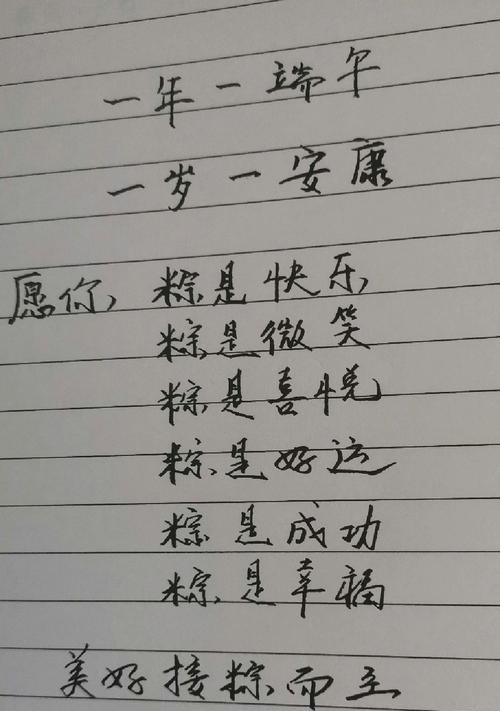 一年一端午
一岁一安康
愿你,粽是快乐,
粽是微笑
粽是喜悦
粽是好运
粽是成功
粽是幸福
美好接粽而至